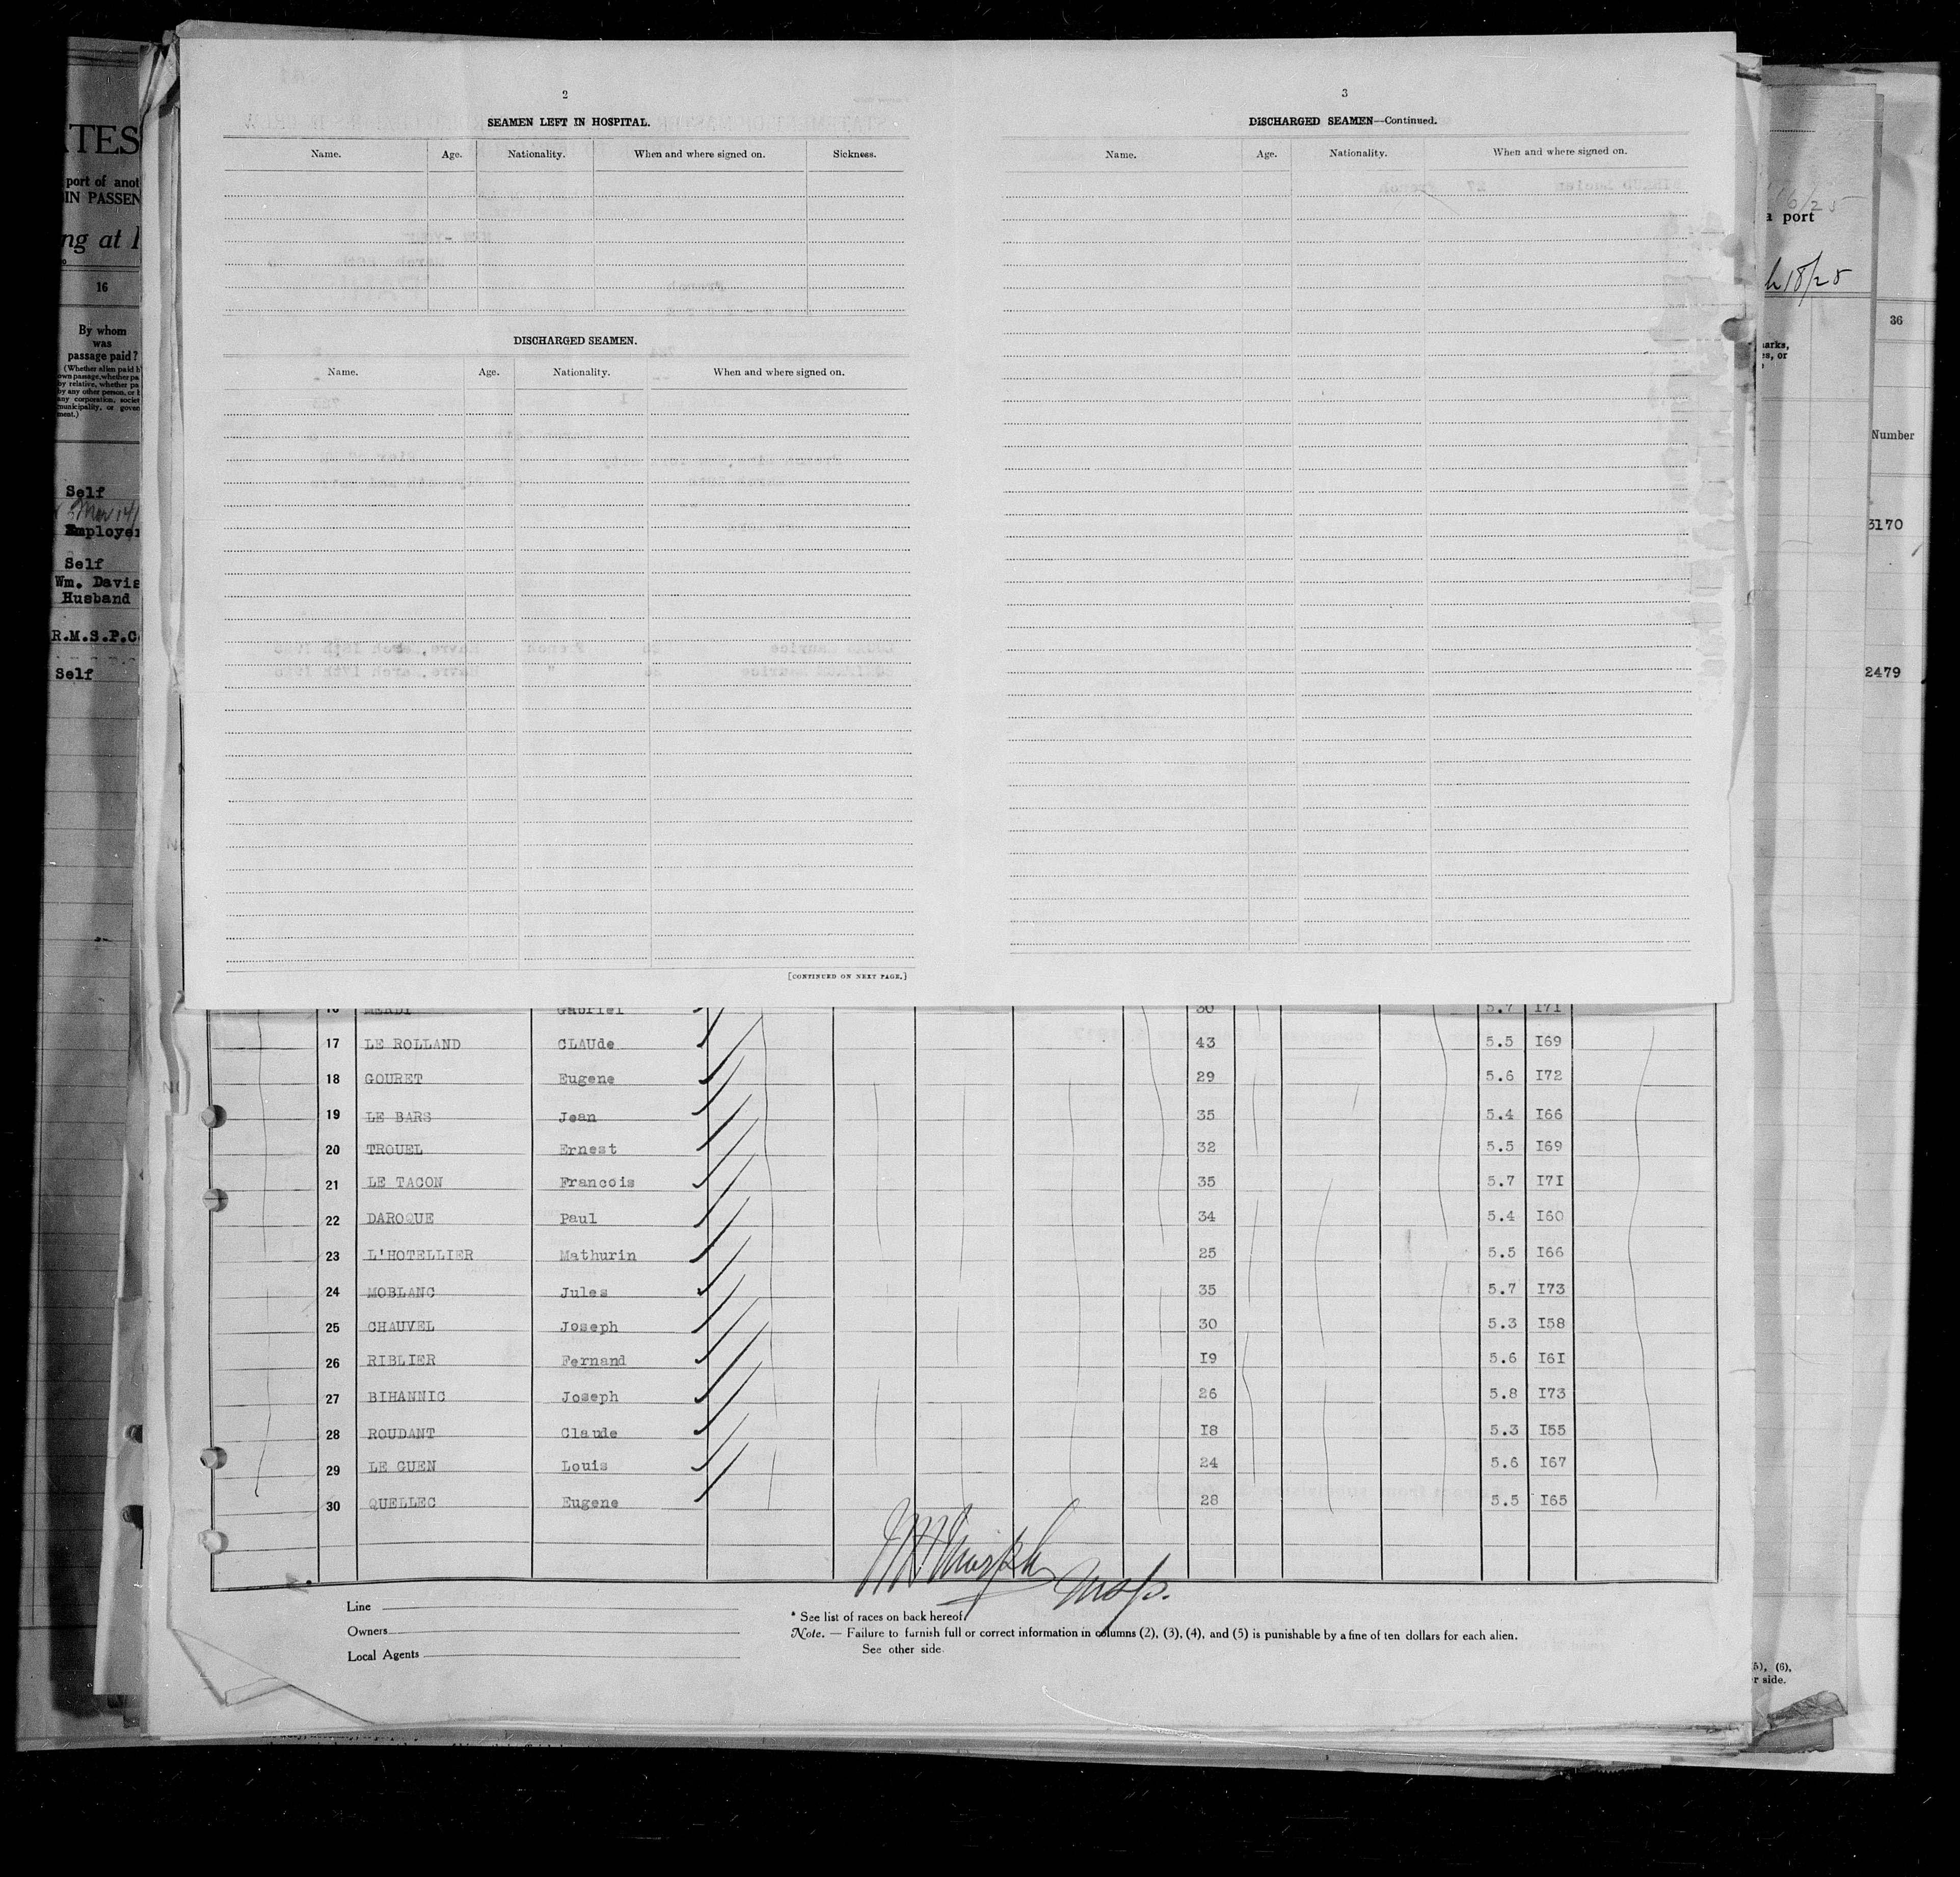 2
SEAMEN LEFT IN HOSPITAL.
Name. Age. Nationality. When and where signed on. Sickness.
DISCHARGED SEAMEN.
Name. Age. Nationality. When and where signed on.
[CONTINUED ON NEXT PAGE.]
3
DISCHARGED SEAMEN—Continued.
Name. Age. Nationality. When and where signed on.
TES
port of anot
IN PASSEN
ng at
16
By whom
was
passage paid?
(Whether alien paid
own passage, whether pa
by relative, whether pa
by any other person, or
any corporation, societ
municipality, or gover
ment.)
Self
Employer
Self
Wm. Davis
Husband
R.M.S.P.C
Self
16/25
a port
h 18/25
36
arks,
es, or
Number
3170
2479
Gabriel 30 5.7 I7I
17 LE ROLLAND CLAUde 43 5.5 I69
18 GOURET Eugene 29 5.6 I72
19 LE BARS Jean 35 5.4 I66
20 TROUEL Ernest 32 5.5 I69
21 LE TACON Francois 35 5.7 I7I
22 DAROQUE Paul 34 5.4 I60
23 L'HOTELLIER Mathurin 25 5.5 I66
24 MOBLANC Jules 35 5.7 I73
25 CHAUVEL Joseph 30 5.3 I58
26 RIBLIER Fernand I9 5.6 I6I
27 BIHANNIC Joseph 26 5.8 I73
28 ROUDANT Claude I8 5.3 I55
29 LE GUEN Louis 24 5.6 I67
30 QUELLEC Eugene 28 5.5 I65
Line
Owners
Local Agents
* See list of races on back hereof.
Note. — Failure to furnish full or correct information in columns (2), (3), (4), and (5) is punishable by a fine of ten dollars for each alien.
See other side.
5), (6),
r side.